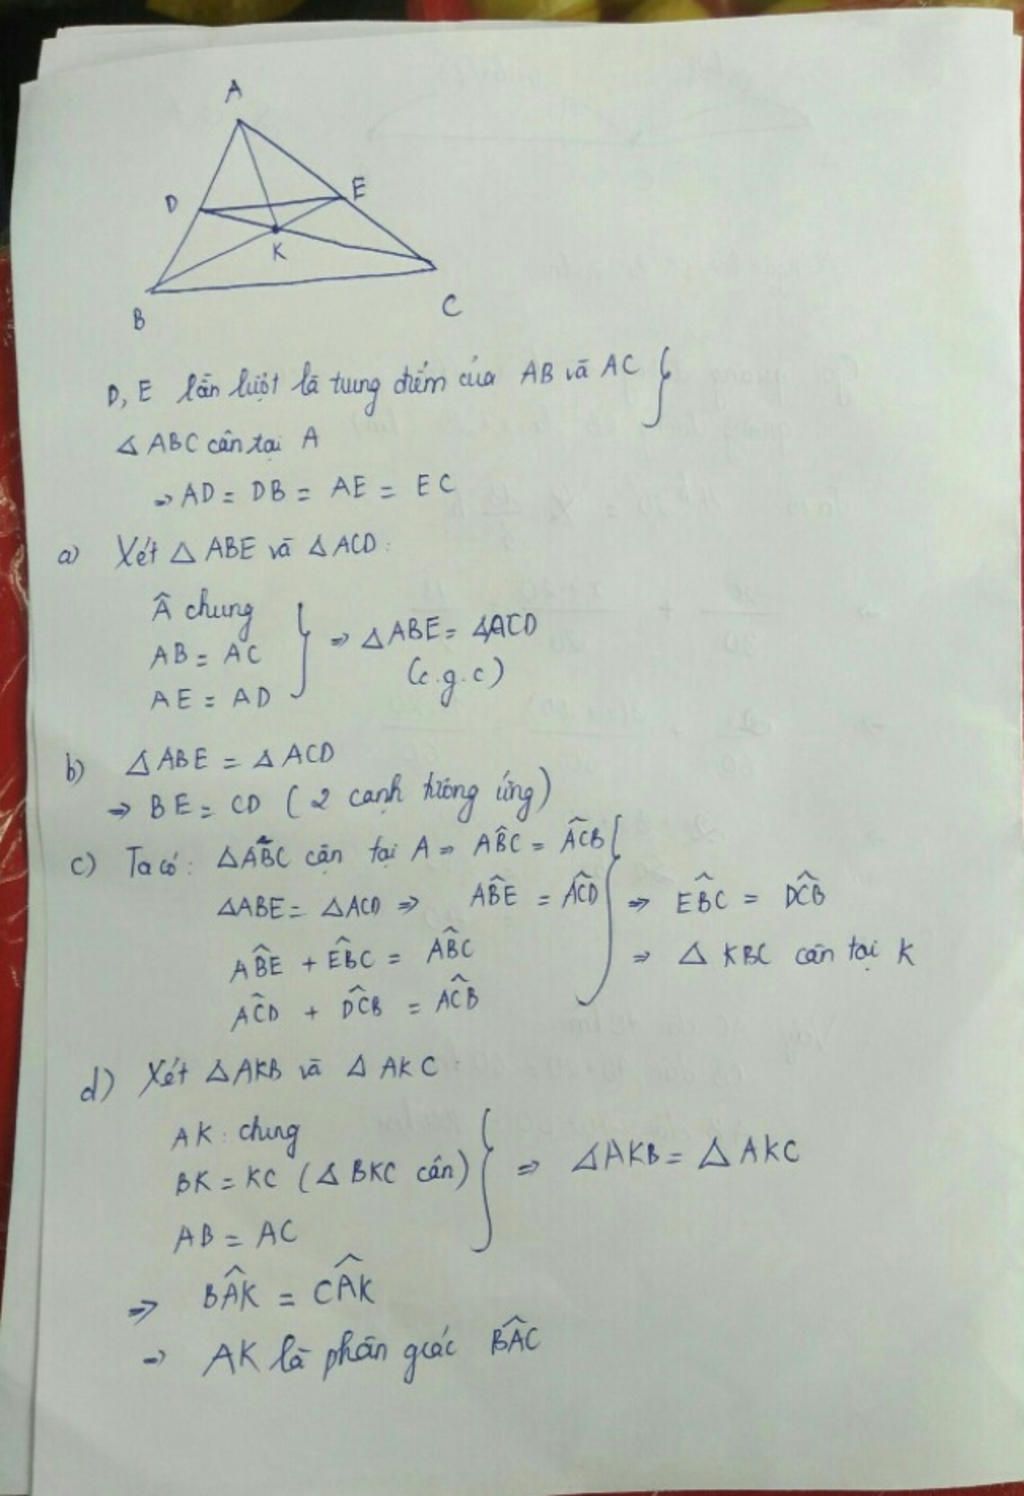 A
D
E
K
B
C
D, E lần lượt là trung điểm của AB và AC }
△ ABC cân tại A
⇒ AD = DB = AE = EC
a) Xét △ ABE và △ ACD:
Â chung
AB = AC
AE = AD
} ⇒ △ABE = △ACD
(c.g.c)
b) △ABE = △ACD
⇒ BE = CD (2 cạnh tương ứng)
c) Ta có: △ABC cân tại A ⇒ AB̂C = AĈB
△ABE = △ACD ⇒ AB̂E = AĈD
AB̂E + EB̂C = AB̂C
AĈD + DĈB = AĈB
} ⇒ EB̂C = DĈB
⇒ △ KBC cân tại K
d) Xét △AKB và △AKC:
AK: chung
BK = KC (△ BKC cân)
AB = AC
} ⇒ △AKB = △AKC
⇒ BÂK = CÂK
⇒ AK là phân giác BÂC